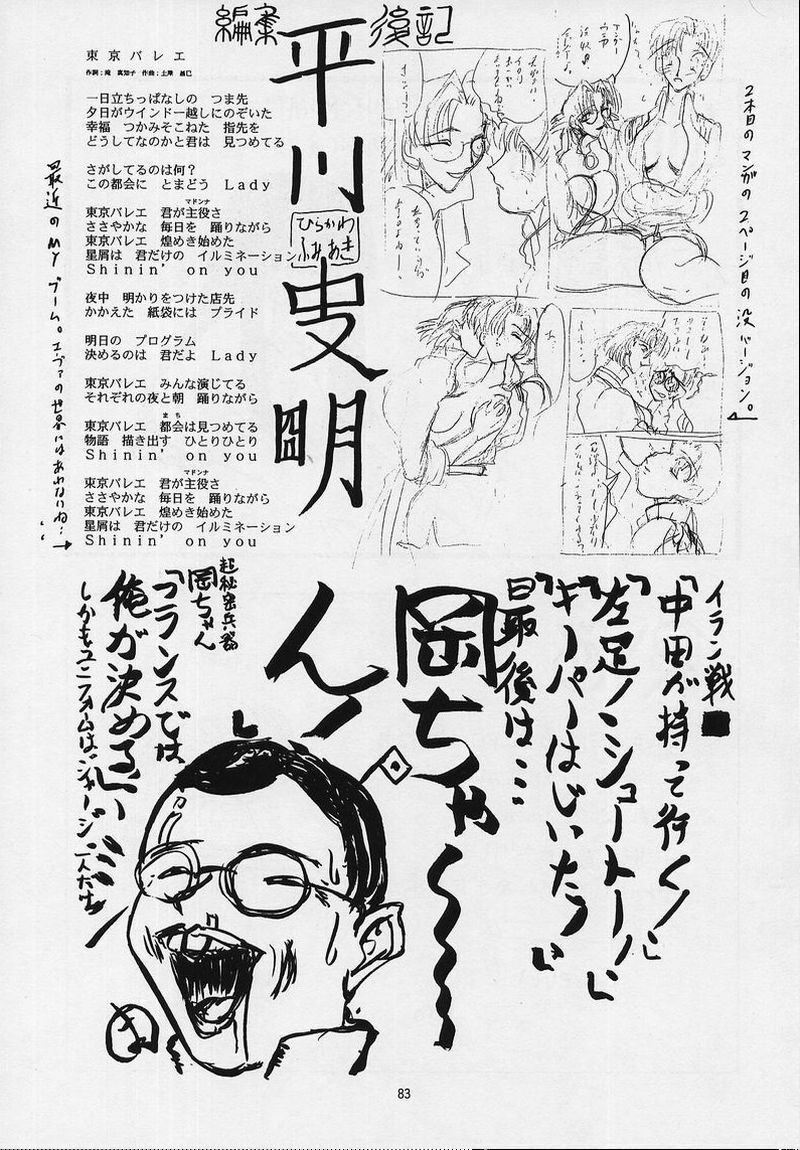 編集後記
平川史明
ひらかわ
ふみあき
東京バレエ
一日立ちっぱなしの つま先
夕日がウインドー越しにのぞいた
幸福 つかみそこねた 指先を
どうしてなのかと君は 見つめてる
さがしてるのは何?
この都会に とまどう Lady
マドンナ
東京バレエ 君が主役さ
ささやかな 毎日を 踊りながら
東京バレエ 煌めき始めた
星屑は 君だけの イルミネーション
Shinin' on you
夜中 明かりをつけた店先
かかえた 紙袋には プライド
明日の プログラム
決めるのは 君だよ Lady
東京バレエ みんな演じてる
それぞれの夜と朝 踊りながら
まち
東京バレエ 都会は見つめてる
物語 描き出す ひとりひとり
Shinin' on you
マドンナ
東京バレエ 君が主役さ
ささやかな 毎日を 踊りながら
東京バレエ 煌めき始めた
星屑は 君だけの イルミネーション
Shinin' on you
最近のMYブーム。エヴァの世界にはあわないね…→
2本目のマンガの2ページ目の没バージョン。
イラン戦
「中田が持って行く!」
「左足ノンショートー!」
「キーパーはじいたっ」
最後は…
岡ちゃ〜〜〜
ん!
超秘密兵器
岡ちゃん
「フランスでは
俺が決める」
しかもユニフォームはジャージ
83